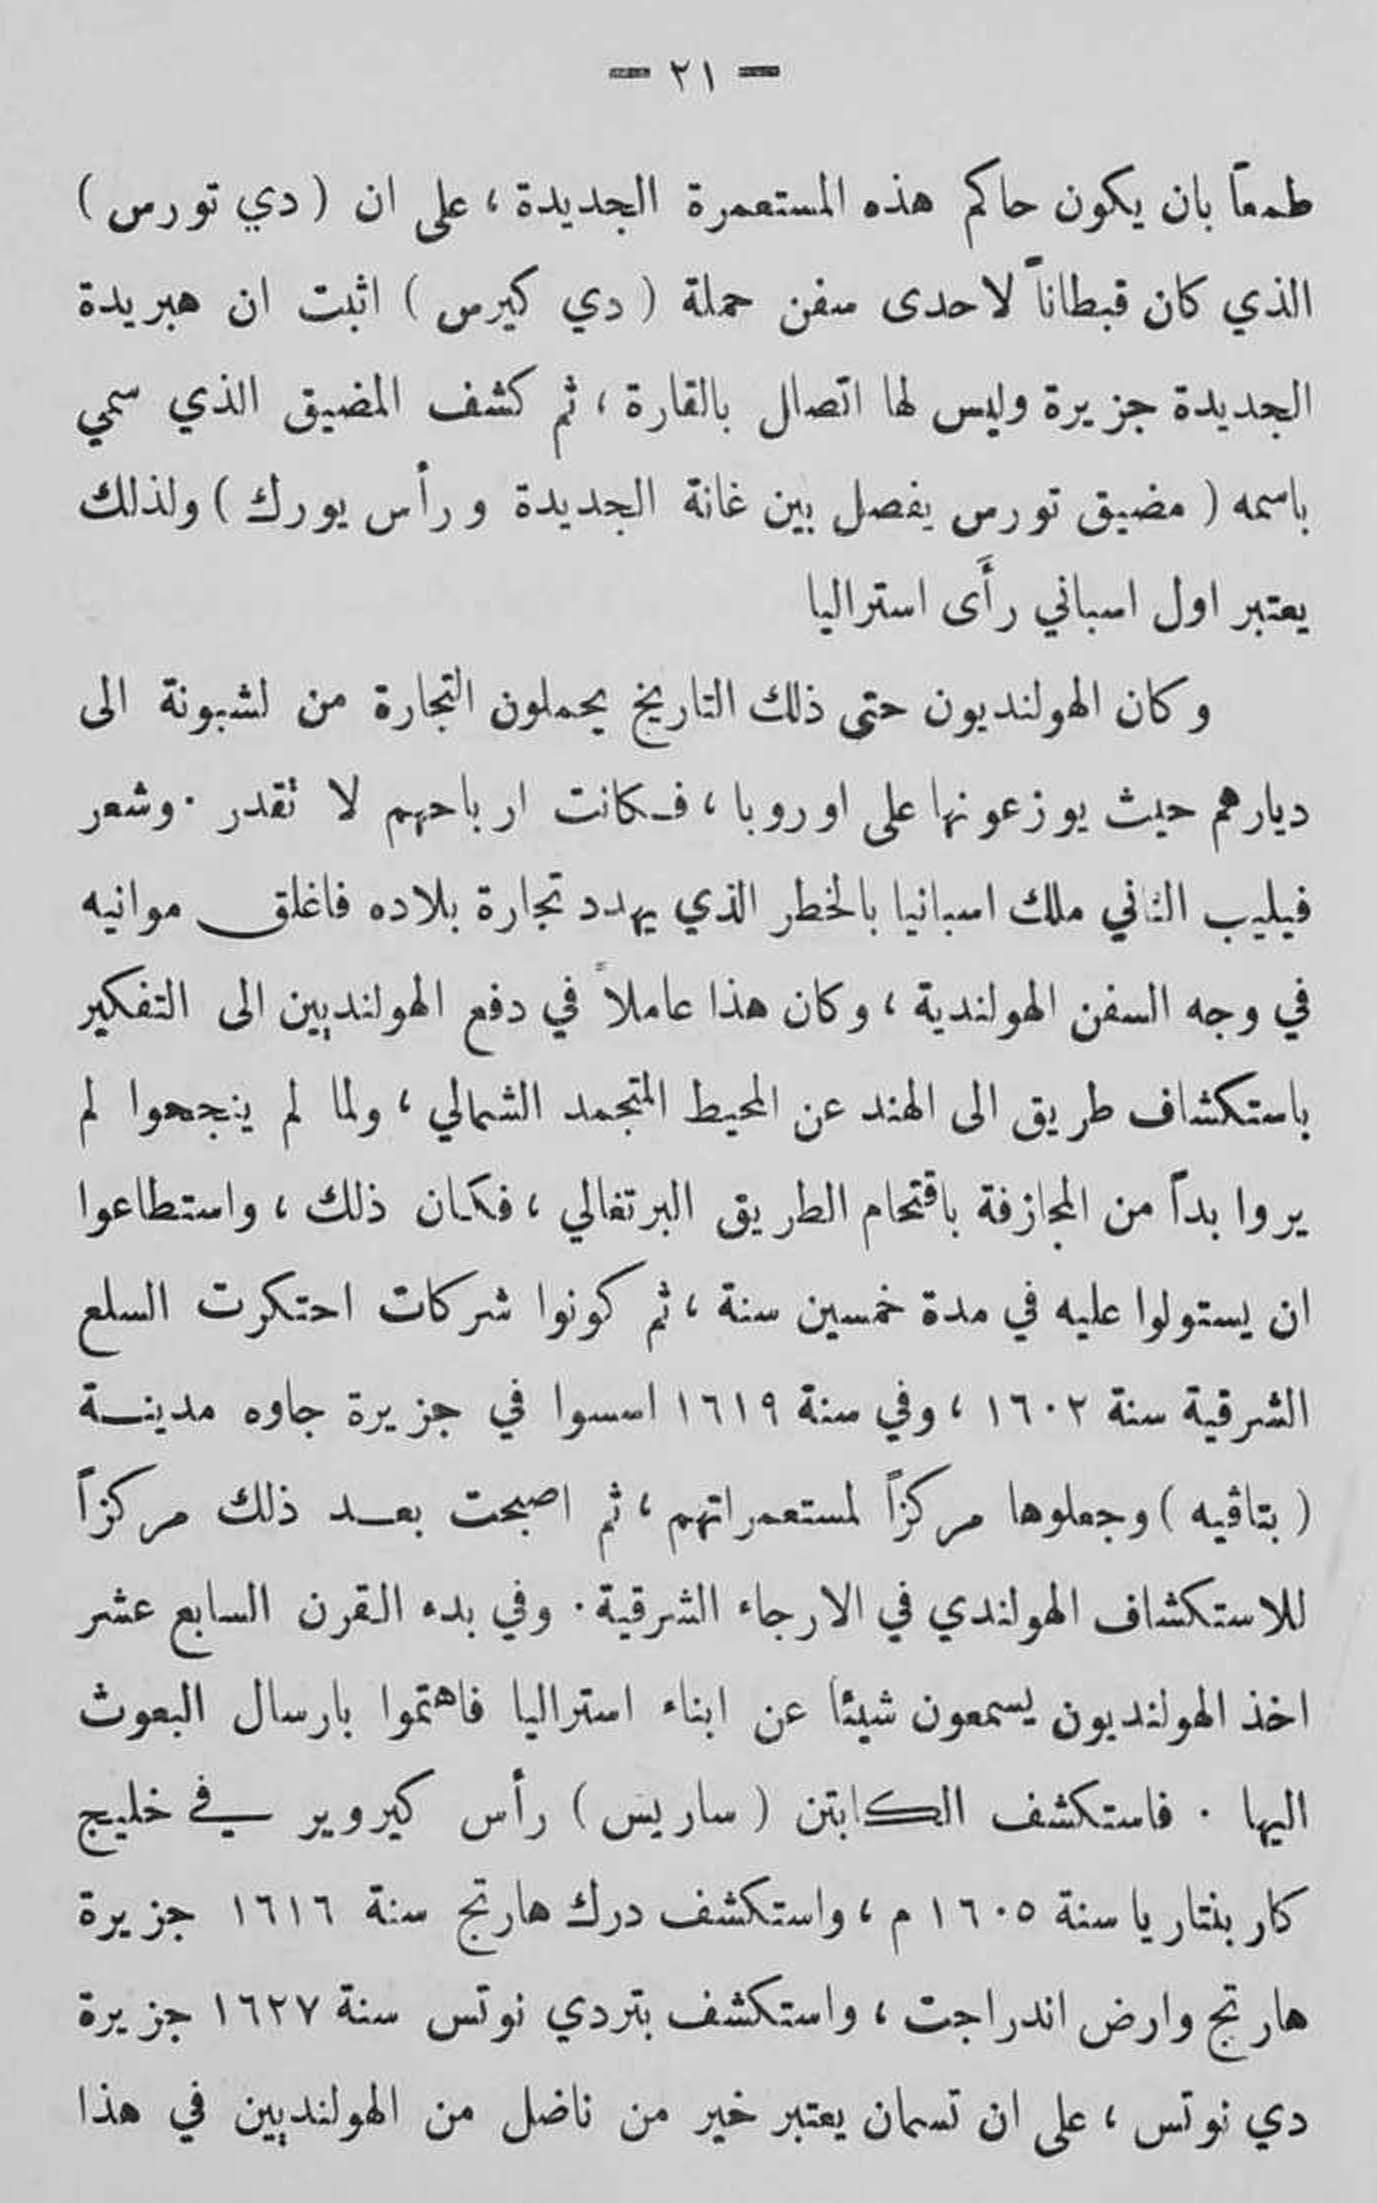 — ٢١ —
طمعاً بان يكون حاكم هذه المستعمرة الجديدة ، على ان ( دي تورس )
الذي كان قبطاناً لاحدى سفن حملة ( دي كيرس ) اثبت ان هبريدة
الجديدة جزيرة وليس لها اتصال بالقارة ، ثم كشف المضيق الذي سمي
باسمه ( مضيق تورس يفصل بين غانة الجديدة ورأس يورك ) ولذلك
يعتبر اول اسباني رأَى استراليا
وكان الهولنديون حتى ذلك التاريخ يحملون التجارة من لشبونة الى
ديارهم حيث يوزعونها على اوروبا ، فكانت ارباحهم لا تقدر . وشعر
فيليب الثاني ملك اسبانيا بالخطر الذي يهدد تجارة بلاده فاغلق موانيه
في وجه السفن الهولندية ، وكان هذا عاملاً في دفع الهولنديين الى التفكير
باستكشاف طريق الى الهند عن المحيط المتجمد الشمالي ، ولما لم ينجحوا لم
يروا بداً من المجازفة باقتحام الطريق البرتغالي ، فكان ذلك ، واستطاعوا
ان يستولوا عليه في مدة خمسين سنة ، ثم كونوا شركات احتكرت السلع
الشرقية سنة ١٦٠٢ ، وفي سنة ١٦١٩ اسسوا في جزيرة جاوه مدينة
( بتاڤيه ) وجعلوها مركزاً لمستعمراتهم ، ثم اصبحت بعد ذلك مركزاً
للاستكشاف الهولندي في الارجاء الشرقية . وفي بدء القرن السابع عشر
اخذ الهولنديون يسمعون شيئا عن ابناء استراليا فاهتموا بارسال البعوث
اليها . فاستكشف الكابتن ( ساريس ) رأس كيروير في خليج
كاربنتاريا سنة ١٦٠٥ م ، واستكشف درك هارتج سنة ١٦١٦ جزيرة
هارتج وارض اندراجت ، واستكشف بتردي نوتس سنة ١٦٢٧ جزيرة
دي نوتس ، على ان تسمان يعتبر خير من ناضل من الهولنديين في هذا